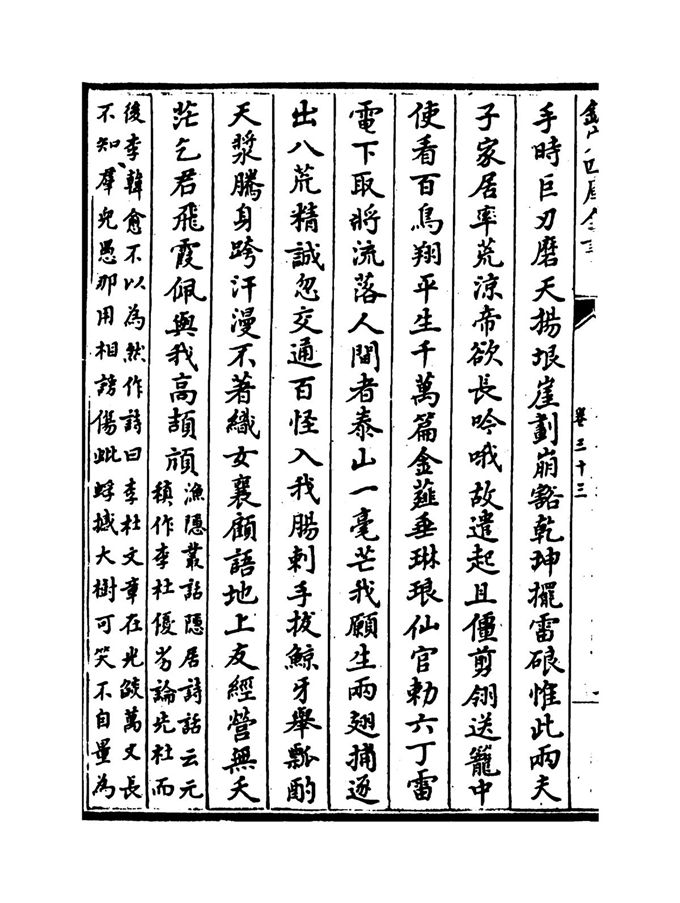 欽定四庫全書
卷三十三
手時巨刃磨天揚垠崖劃崩豁乾坤擺雷硠惟此兩夫
子家居率荒涼帝欲長吟哦故遣起且僵剪翎送籠中
使看百鳥翔平生千萬篇金薤垂琳琅仙官勅六丁雷
電下取將流落人間者泰山一毫芒我願生兩翅捕逐
出八荒精誠忽交通百怪入我腸刺手拔鯨牙舉瓢酌
天漿騰身跨汗漫不著織女襄顧語地上友經營無太
茫乞君飛霞佩與我高頡頏
漁隠叢話隠居詩話云元
稹作李杜優劣論先杜而
後李韓愈不以為然作詩曰李杜文章在光燄萬丈長
不知羣兒愚那用相謗傷蚍蜉撼大樹可笑不自量為